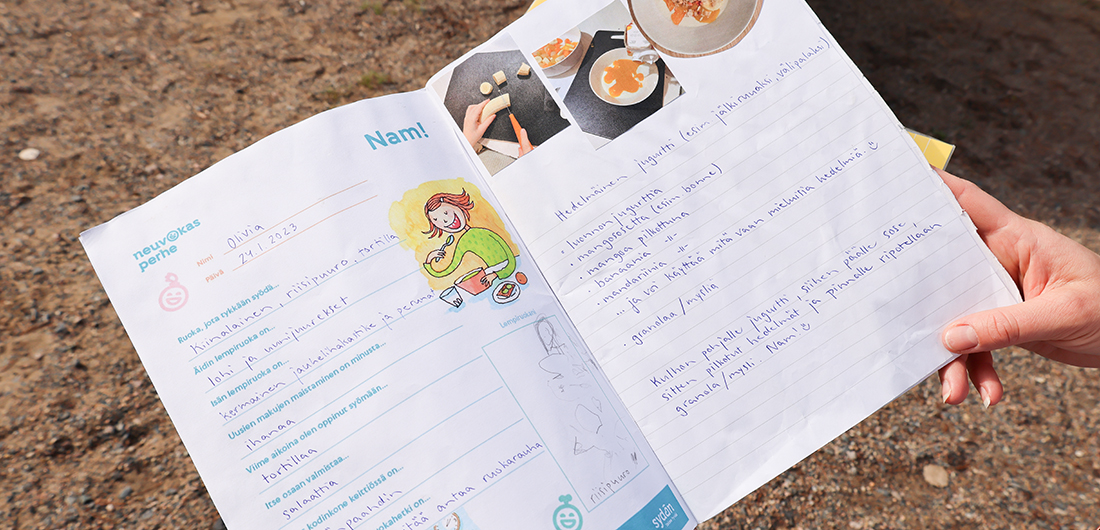 Nam!
neuvokas
perhe
Nimi Olivia
Päivä 24.1.2023
Ruoka, jota tykkään syödä...
Kiinalainen, riisipuuro, tortilla
Äidin lempiruoka on...
lohi ja uunijuurekset
Isän lempiruoka on...
kermainen jauhelihakastike ja peruna
Uusien makujen maistaminen on minusta...
ihanaa
Viime aikoina olen oppinut syömään...
tortillaa
Itse osaan valmistaa...
salaattia
kodinkone keittiössä on...
paahdin
kahetki on...
antaa ruokarauha
Lempiruokani
riisipuuro
sydän
Hedelmäinen jugurtti (esim jälkiruuaksi, välipalaksi)
• luonnonjugurttia
• mangososetta (esim bonne)
• mangoa pilkottuna
• banaania -||-
• mandariinia -||-
... ja voi käyttää mitä vaan mieluisia hedelmiä. :)
• granolaa/mysliä
Kulhon pohjalle jugurtti, sitten päälle sose,
sitten pilkotut hedelmät ja pinnalle ripotellaan
granola/mysli. Nam! :)